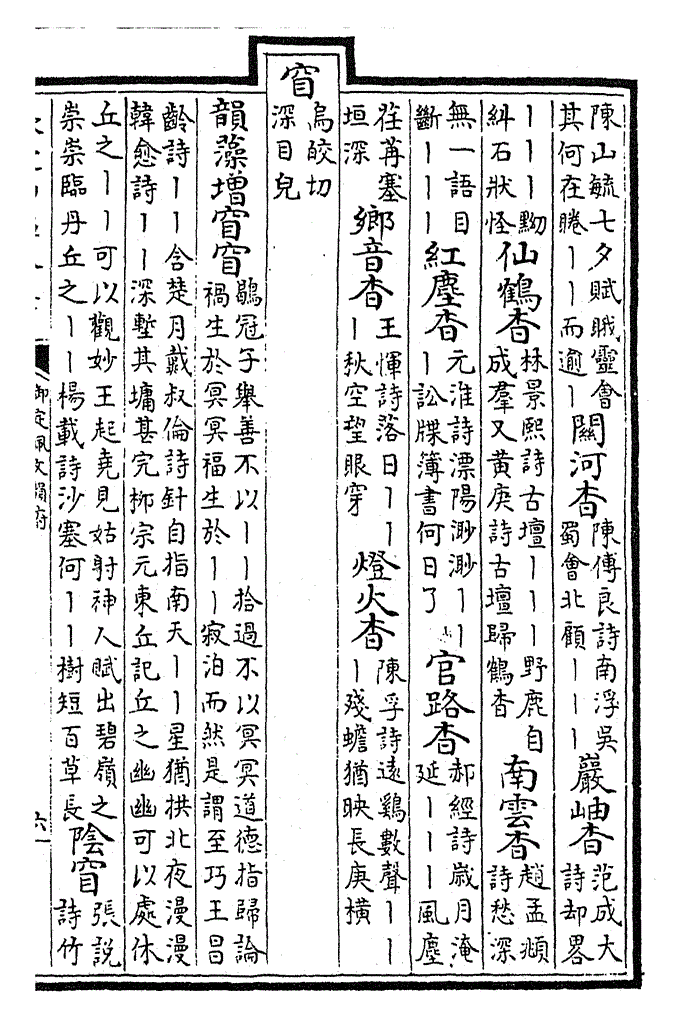 陳山毓七夕賦眂靈會其何在睠丨丨而逾丨關河杳陳傅良詩南浮吳蜀會北顧丨丨丨巖岫杳范成大詩却畧
丨丨丨黝糾石狀怪仙鶴杳林景熙詩古壇丨丨丨野鹿自成羣又黄庚詩古壇歸鶴杳南雲杳趙孟頫詩愁深
無一語目斷丨丨丨紅塵杳元淮詩漂陽渺渺丨丨丨訟牒簿書何日了官路杳郝經詩歳月淹延丨丨丨風塵
荏苒塞垣深鄉音杳王惲詩落日丨丨丨秋空望眼穿燈火杳陳孚詩遠鷄數聲丨丨丨殘蟾猶映長庚橫
窅烏皎切深目皃
韻藻增窅窅鶡冠子舉善不以丨丨拾過不以冥冥道德指歸論禍生於冥冥福生於丨丨寂泊而然是謂至巧王昌
齡詩丨丨含楚月戴叔倫詩針自指南天丨丨星猶拱北夜漫漫韓愈詩丨丨深塹其墉甚完柳宗元東丘記丘之幽幽可以處休
丘之丨丨可以觀妙王起堯見姑射神人賦出碧嶺之崇崇臨丹丘之丨丨楊載詩沙塞何丨丨樹短百草長陰窅張說詩竹
御定佩文韻府
六